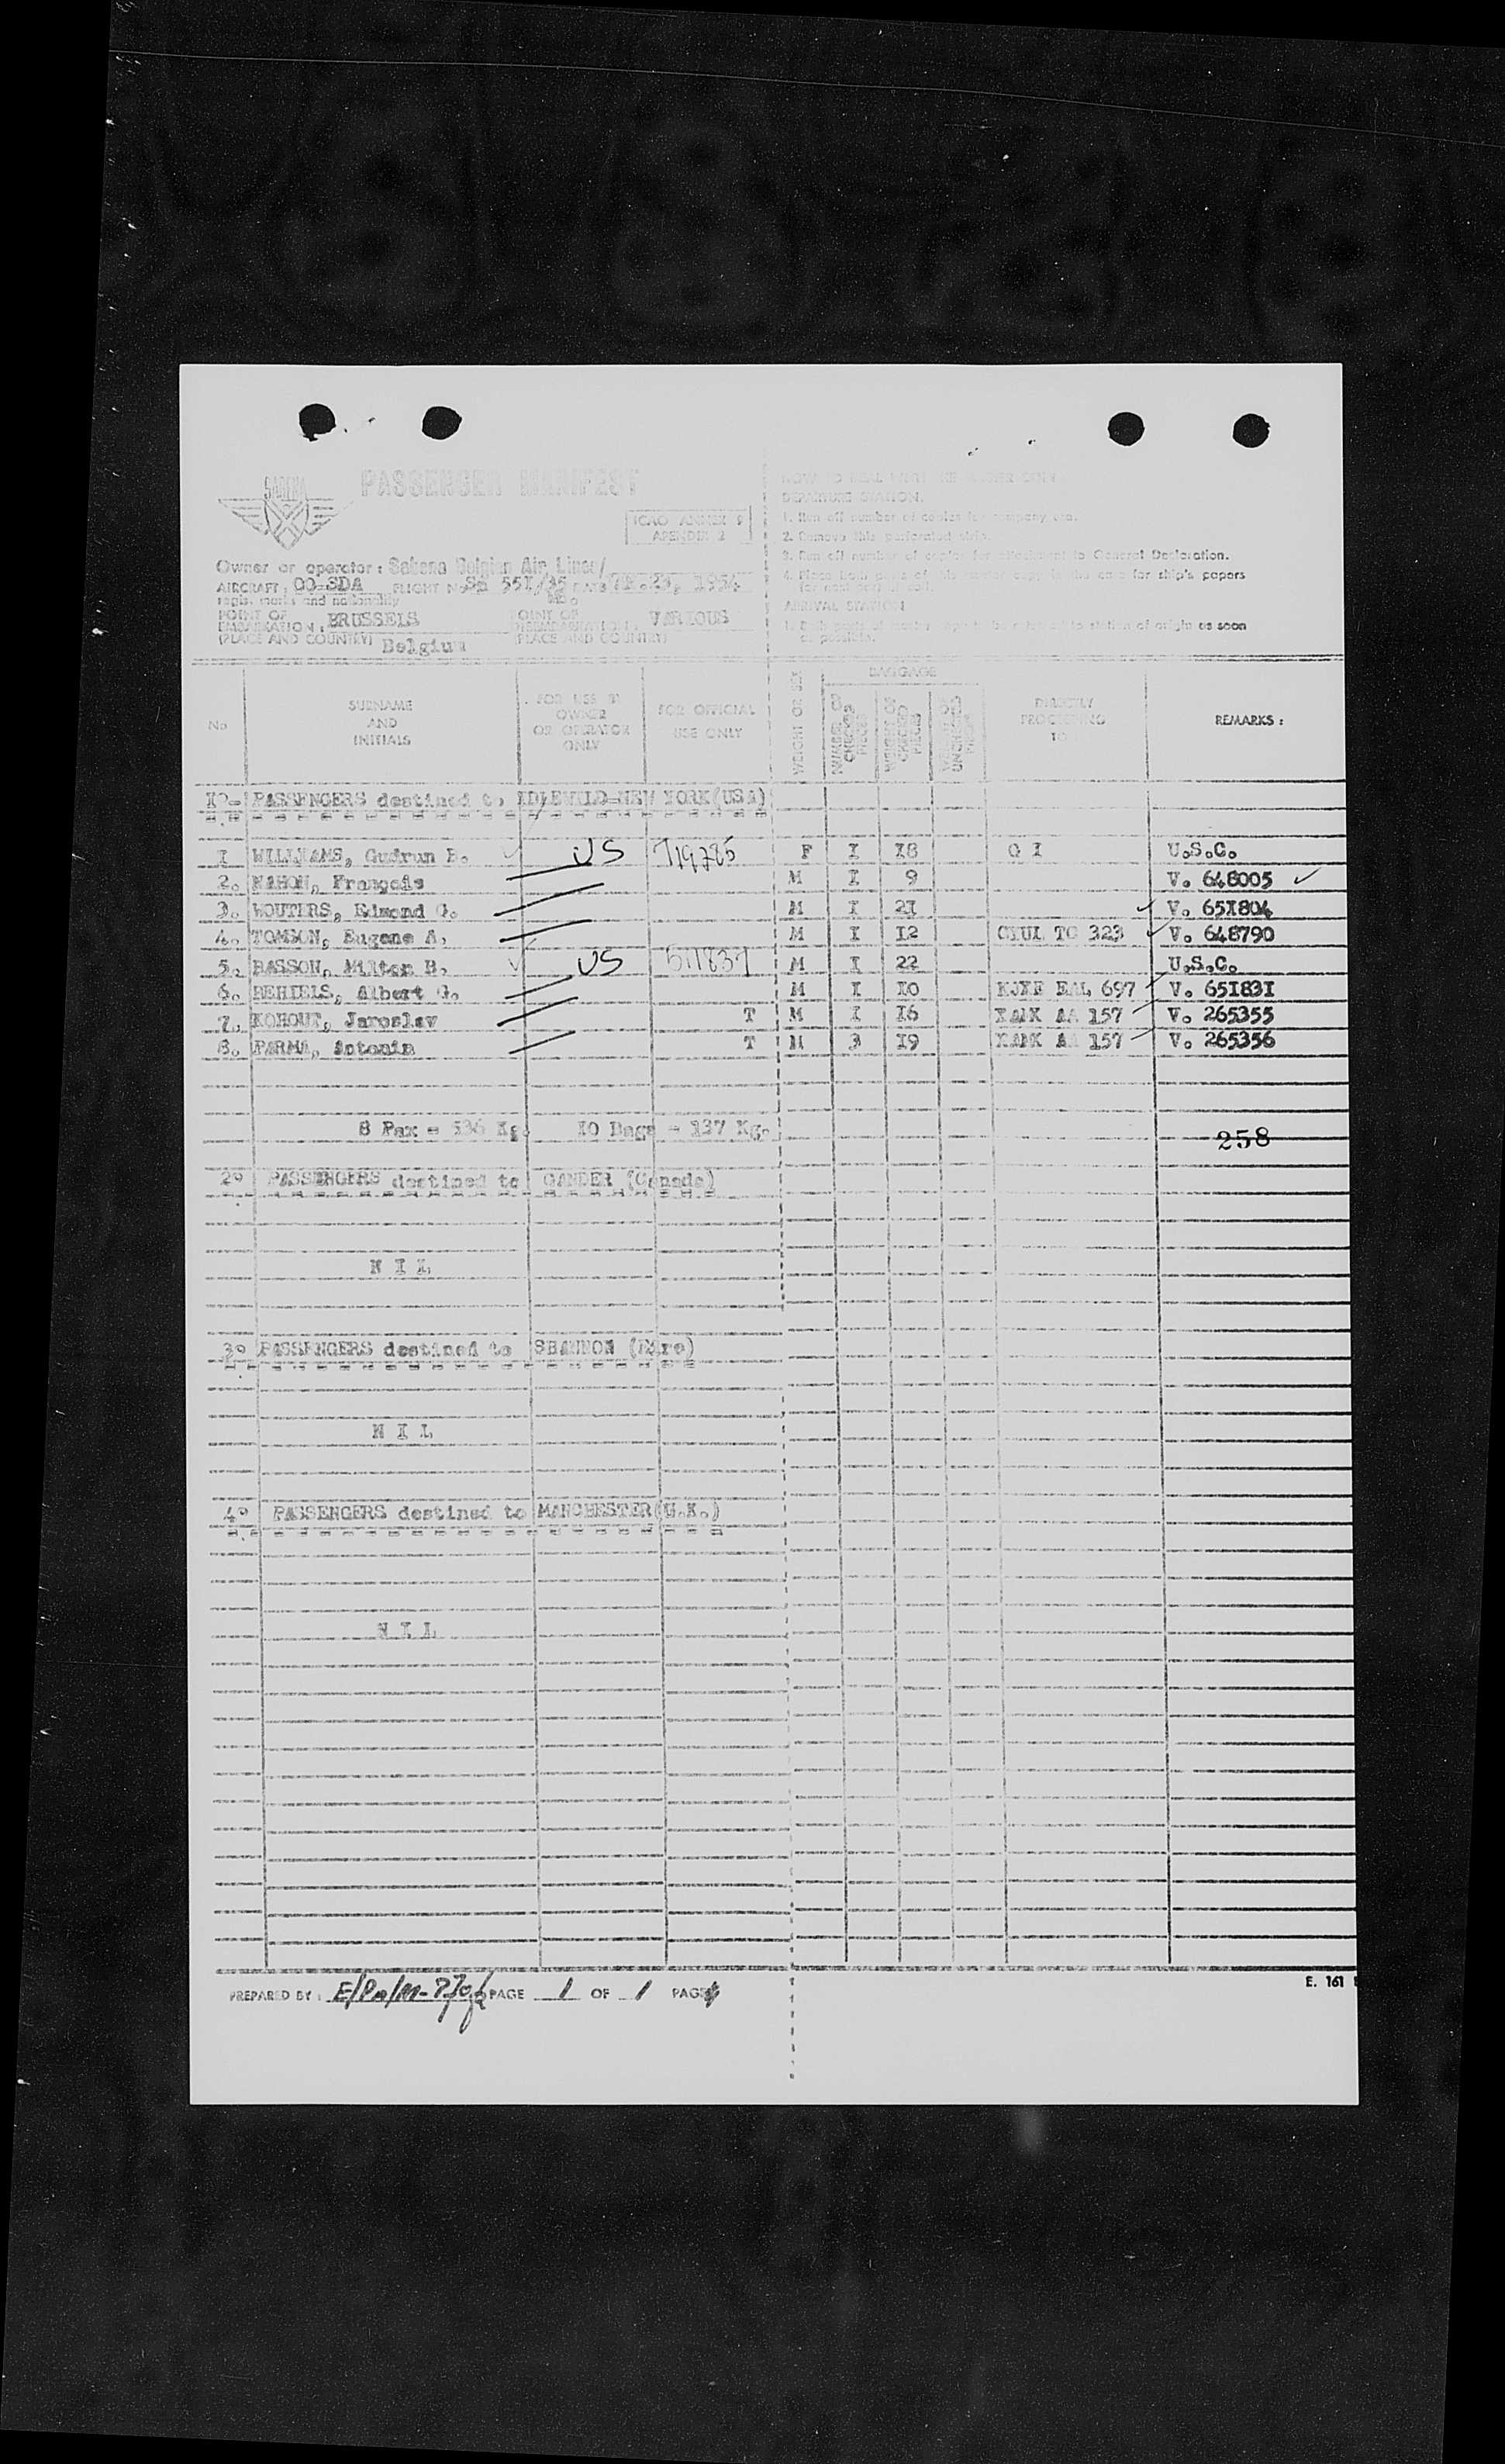 SABENA
PASSENGER MANIFEST
ICAO ANNEX 9
APENDIX 2
Owner or operator : Sabena Belgian Air Lines/
AIRCRAFT : OO-SDA FLIGHT No Sn 551/35 DATE 23, 1954
regis. marks and nationality
POINT OF EMBARKATION : BRUSSELS
POINT OF VARIOUS
(PLACE AND COUNTRY) Belgium (PLACE AND COUNTRY)
DEPARTURE STATION.
1. Run off number of copies for company use.
2. Remove this perforated strip.
3. Run off number of copies for attachment to General Declaration.
4. Place both of the case for ship's papers
ARRIVAL STATION
station of origin as soon
as possible.
No
SURNAME AND INITIALS
FOR USE BY OWNER OR OPERATOR ONLY
FOR OFFICIAL USE ONLY
WEIGHT OR SEX
BAGGAGE
NUMBER OF CHECKED PIECES
WEIGHT OF CHECKED PIECES
WEIGHT OF UNCHECKED PIECES
DIRECTLY PROCEEDING TO
REMARKS :
1°- PASSENGERS destined to IDLEWILD-NEW YORK(USA)
1 WILLIAMS, Gudrun B. US 719785 F I 18 O I U.S.C.
2. MAHON, François M I 9 V. 648005
3. WOUTERS, Edmond G. M I 21 V. 651804
4. TOMSON, Eugene A. M I 12 CYUL TC 323 V. 648790
5. BASSON, Milton B. US 511837 M I 22 U.S.C.
6. REHIELS, Albert G. M I 10 KJXF EAL 697 V. 651831
7. KOHOUT, Jaroslav T M I 16 XAMK AA 157 V. 265355
8. PARMA, Antonin T M 3 19 XAMK AA 157 V. 265356
8 Pax = 536 Kg. 10 Bags = 127 Kg.
258
2° PASSENGERS destined to GANDER (Canada)
N I L
3° PASSENGERS destined to SHANNON (Eire)
N I L
4° PASSENGERS destined to MANCHESTER(U.K.)
N I L
E. 161
PREPARED BY : PAGE 1 OF 1 PAGE